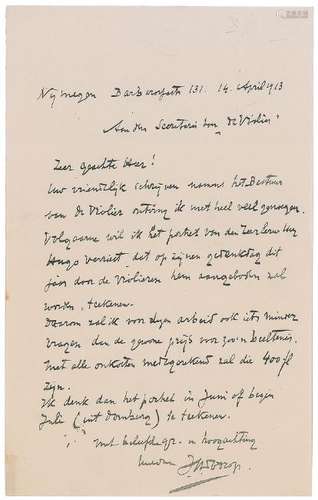 Nymegen Barbarossastr 131. 14 April 1913
Aan den Secretaris van "de Violier"
Zeer geachte Heer!
Uw vriendelijk schrijven namens het Bestuur
van de Violier ontving ik met heel veel genoegen.
Volgaarne wil ik het portret van den Zeer Eerw Heer
Hugo Verriest dat op zijnen gedenkdag dit
jaar door de Violieren hem aangeboden zal
worden, teekenen.
Daarom zal ik voor dezen arbeid ook iets minder
vragen dan de gewone prijs voor zoo'n beeltenis.
Met alle onkosten medegerekend zal die 400 fl
zijn.
Ik denk dan het portret in Juni of begin
Juli (uit Domburg) te teekenen.
Met beleefde gr. en hoogachting
J Th Toorop